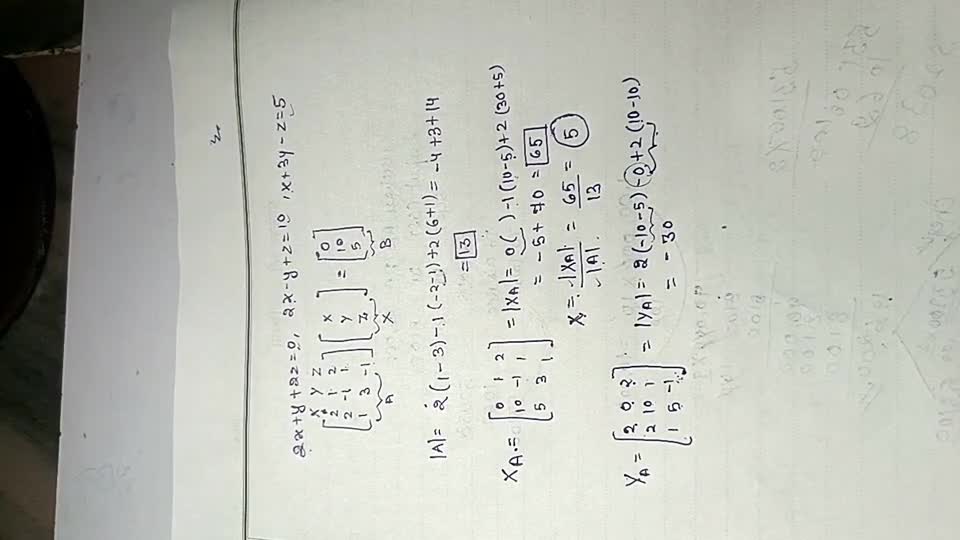 2x+y+2z=0, 2x-y+z=10, x+3y-z=5
x y z
[2 1 2
2 -1 1
1 3 -1] [x
y
z] = [0
10
5]
A X B
|A| = 2(1-3)-1(-2-1)+2(6+1) = -4+3+14
= 13
XA = [0 1 2
10 -1 1
5 3 1] = |XA| = 0( )-1(10-5)+2(30+5)
= -5+70 = 65
x = |XA| / |A| = 65 / 13 = 5
YA = [2 0 2
2 10 1
1 5 -1] = |YA| = 2(-10-5)-0+2(10-10)
= -30